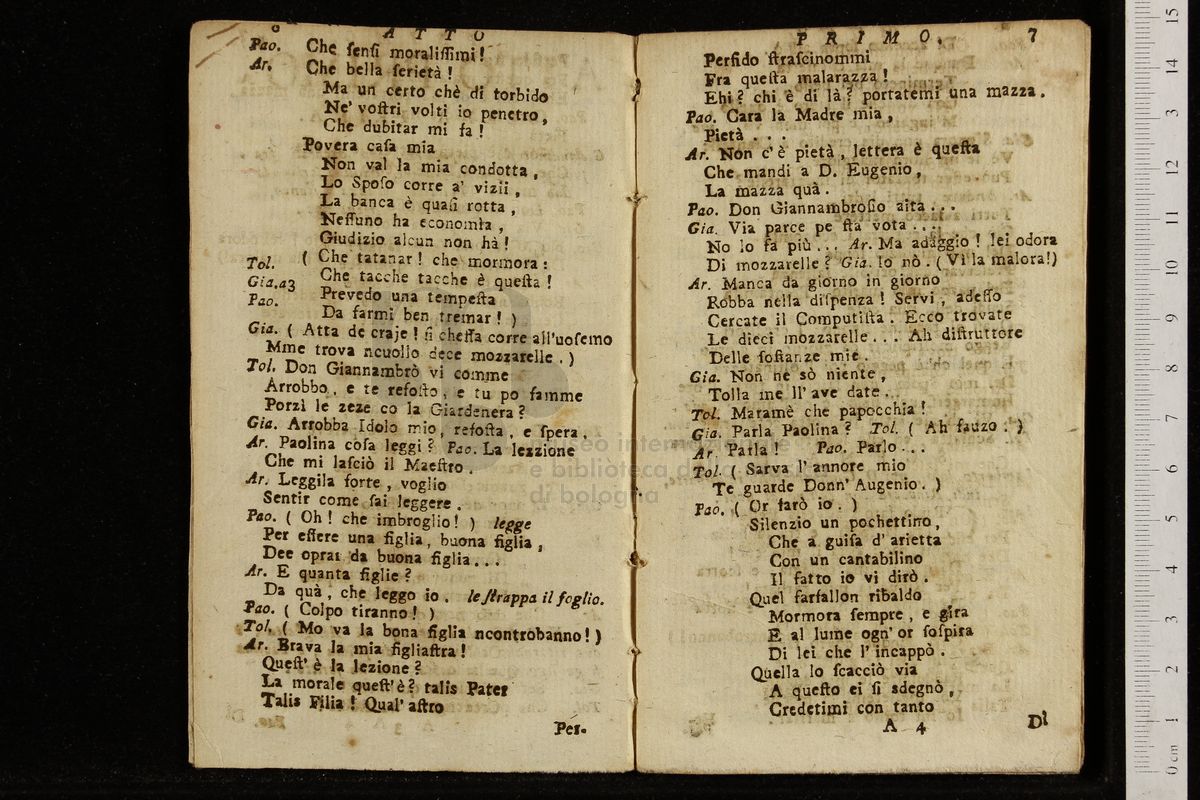 6 ATTO
Pao. Che ſenſi moraliſſimi!
Ar. Che bella ſerietà!
Ma un certo chè di torbido
Ne' voſtri volti io penetro,
Che dubitar mi fa!
Povera caſa mia
Non val la mia condotta,
Lo Spoſo corre a' vizii,
La banca è quaſi rotta,
Neſſuno ha economìa,
Giudizio alcun non hà!
Tol. ( Che tatanar! che mormora:
Gia.a3 Che tacche tacche è queſta!
Pao. Prevedo una tempeſta
Da farmi ben tremar! )
Gia. ( Atta de craje! ſi cheſſa corre all'uoſemo
Mme trova ncuollo dece mozzarelle. )
Tol. Don Giannambrò vi comme
Arrobbo, e te refoſto, e tu po famme
Porzì le zeze co la Giardenera?
Gia. Arrobba Idolo mio, refoſta, e ſpera,
Ar. Paolina coſa leggi? Pao. La lezzione
Che mi laſciò il Maeſtro.
Ar. Leggila forte, voglio
Sentir come ſai leggere.
Pao. ( Oh! che imbroglio! ) legge
Per eſſere una figlia, buona figlia,
Dee oprar da buona figlia...
Ar. E quanta figlie?
Da quà, che leggo io. le ſtrappa il foglio.
Pao. ( Colpo tiranno! )
Tol. ( Mo va la bona figlia ncontrobanno! )
Ar. Brava la mia figliaſtra!
Queſt' è la lezione?
La morale queſt'è? talis Pater
Talis Filia! Qual' aſtro
Per.
PRIMO. 7
Perfido ſtraſcinommi
Fra queſta malarazza!
Ehi? chi è di là? portatemi una mazza.
Pao. Cara la Madre mia,
Pietà...
Ar. Non c'è pietà, lettera è queſta
Che mandi a D. Eugenio,
La mazza quà.
Pao. Don Giannambroſio aita...
Gia. Via parce pe ſta vota...
No lo fa più... Ar. Ma adaggio! lei odora
Di mozzarelle? Gia. Io nò. ( Vi la malora!)
Ar. Manca da giorno in giorno
Robba nella diſpenza! Servi, adeſſo
Cercate il Computiſta. Ecco trovate
Le dieci mozzarelle... Ah diſtruttore
Delle ſoſtanze mie.
Gia. Non ne sò niente,
Tolla me ll' ave date.
Tol. Maramè che papocchia!
Gia. Parla Paolina? Tol. ( Ah fauzo. )
Ar. Parla! Pao. Parlo...
Tol. ( Sarva l' annore mio
Te guarde Donn' Augenio. )
Pao. ( Or farò io. )
Silenzio un pochettino,
Che a guiſa d' arietta
Con un cantabilino
Il fatto io vi dirò.
Quel farfallon ribaldo
Mormora ſempre, e gira
E al lume ogn' or ſoſpira
Di lei che l' incappò.
Quella lo ſcacciò via
A queſto ei ſi sdegnò,
Credetimi con tanto
A 4
Di
museo internazionale
e biblioteca della
di bologna